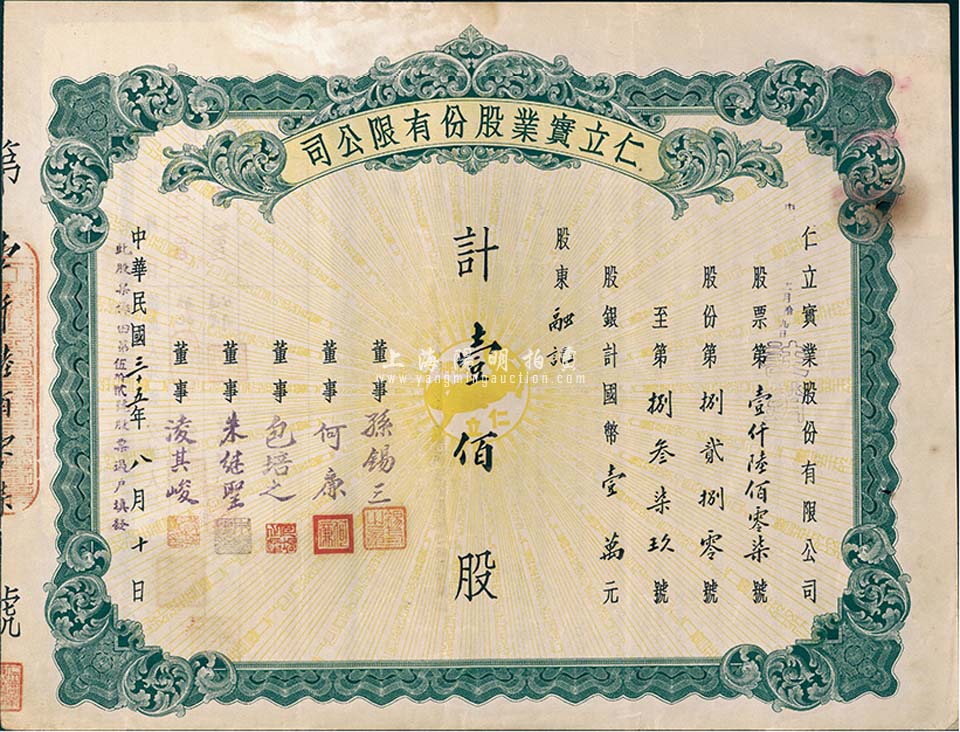 仁立實業股份有限公司
仁立實業股份有限公司
股票第壹仟陸佰零柒號
股份第捌貳捌零號
至第捌叁柒玖號
股銀計國幣壹萬元
股東融記
計壹佰股
董事孫錫三
董事何廉
董事包培之
董事朱继聖
董事淩其峻
中華民國三十五年八月十日
此股票 第伍 貳 股票過戶填發
第壹仟陸佰零柒號
仁立
上海陽明拍賣
www.yangmingauction.com